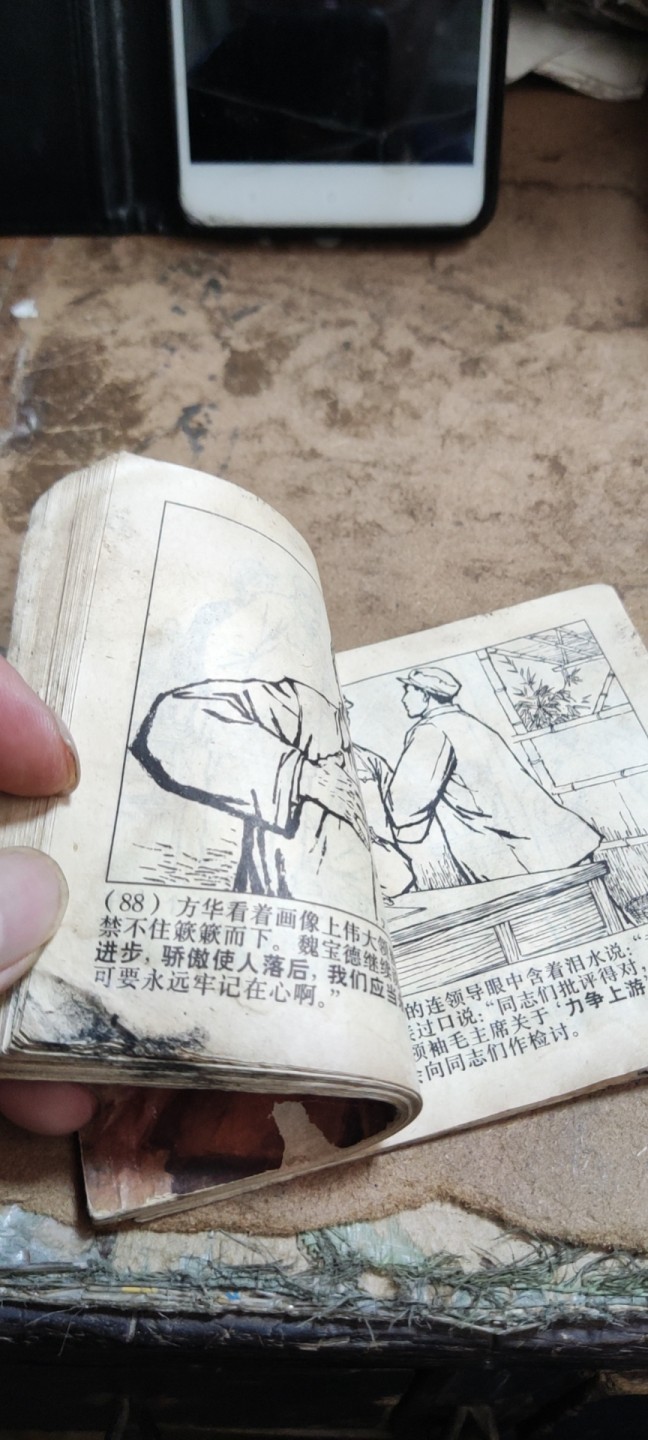 （88） 方华看着画像上伟大
禁不住簌簌而下。魏宝德继续
进步，骄傲使人落后，我们应当
可要永远牢记在心啊。”
的连领导眼中含着泪水说：“
过口说：“同志们批评得对，
领袖毛主席关于“力争上游
向同志们作检讨。